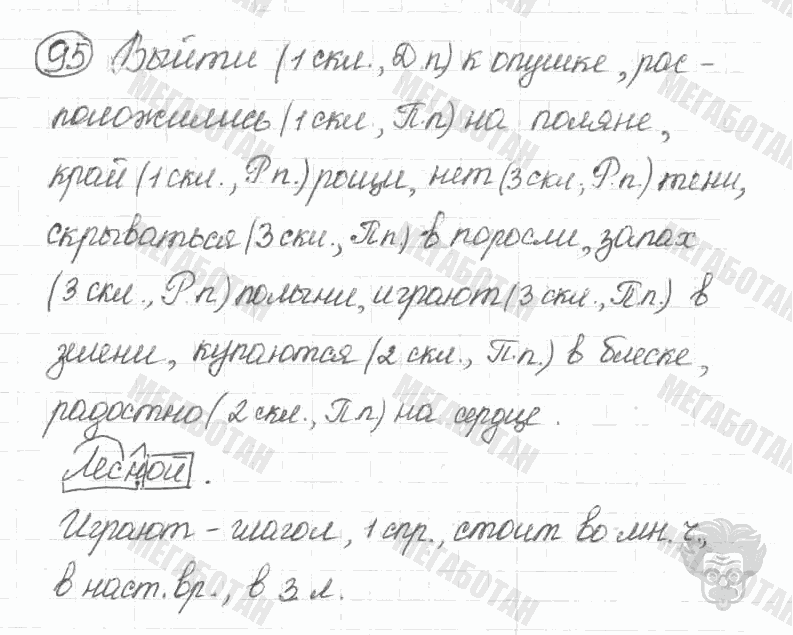 95 Выйти (1 скл., Д.п) к опушке, рас-
положились (1 скл., П.п) на поляне,
край (1 скл., Р.п.) рощи, нет (3 скл., Р.п.) тени,
скрываться (3 скл., П.п.) в поросли, запах
(3 скл., Р.п) полыни, играют (3 скл., П.п.) в
зелени, купаются (2 скл., П.п.) в блеске,
радостно (2 скл., П.п) на сердце.
Лесной.
Играют - глагол, 1 спр., стоит во мн. ч.,
в наст. вр., в 3 л.
МЕГАБОТАН